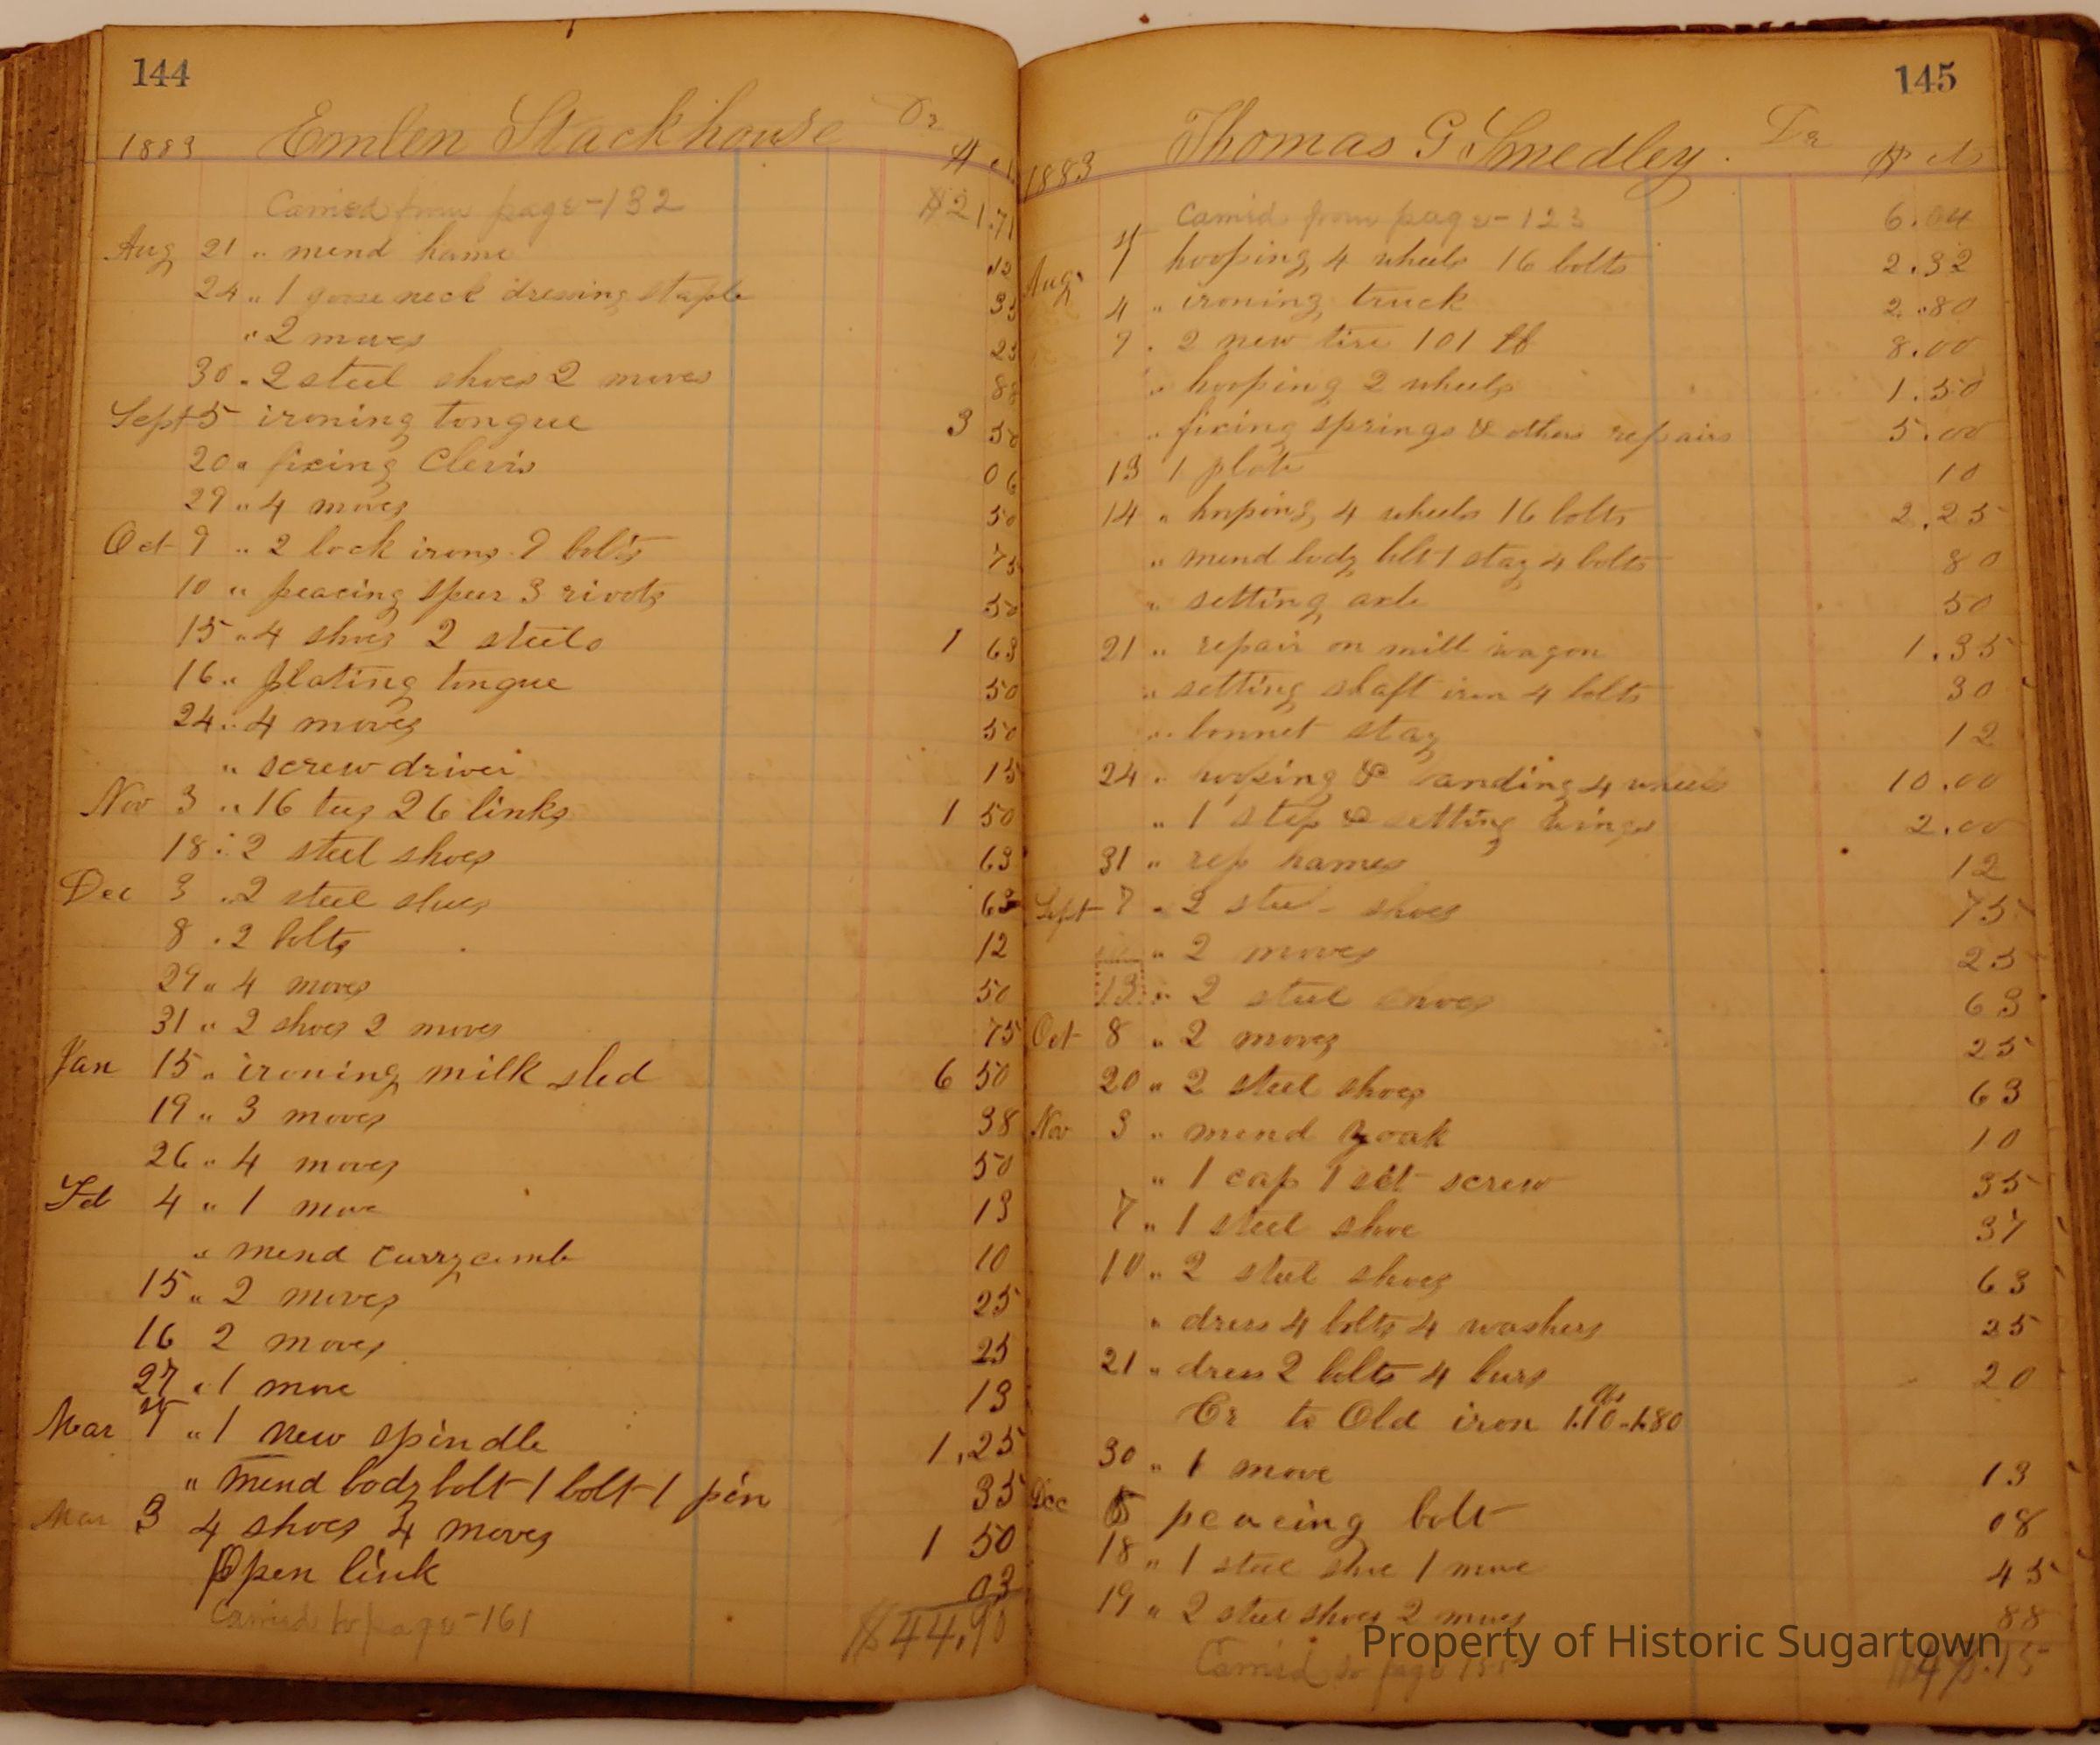 144
1883 Emlen Stackhouse Dr
$ ct
Carried from page-132 $21.71
Aug 21 " mend hame 12
24 " 1 goose neck dressing staple 35
" 2 moves 25
30 " 2 steel shoes 2 moves 88
Sept 5 ironing tongue 3 50
20 " fixing Clevis 06
29 " 4 moves 50
Oct 9 " 2 lock irons 9 bolts 75
10 " peacing speer 3 rivots 50
15 " 4 shoes 2 steels 1 63
16 " plating tongue 50
24 " 4 moves 50
" screw driver 15
Nov 3 " 16 teeg 26 links 1 50
18 " 2 steel shoes 63
Dec 3 " 2 steel shoes 63
8 " 2 bolts 12
29 " 4 moves 50
31 " 2 shoes 2 moves 75
Jan 15 " ironing milk sled 6 50
19 " 3 moves 38
26 " 4 moves 50
Feb 4 " 1 move 13
" mend currycomb 10
15 " 2 moves 25
16 2 moves 25
27 " 1 move 13
Mar 1 " 1 new spindle 1.25
" mend body bolt 1 bolt 1 pin 35
Mar 3 4 shoes 4 moves 1 50
Open link 03
Carried to page-161 $44.90
145
1883 Thomas G Smedley. Dr
$ cts
Carried from page-123 6.04
Aug 1 hooping 4 wheels 16 bolts 2.32
4 " ironing truck 2.80
9 " 2 new tire 101 lb 8.00
" hooping 2 wheels 1.50
" fixing springs & others repairs 5.00
13 1 plate 10
14 " hooping 4 wheels 16 bolts 2.25
" mend body blt 1 stay 4 bolts 80
" setting axle 50
21 " repair on mill wagon 1.35
" setting shaft iron 4 bolts 30
" bonnet stay 12
24 " hooping & banding 4 wheels 10.00
" 1 step & setting wings 2.00
31 " rep hames 12
Sept 7 " 2 steel shoes 75
" 2 moves 25
13 " 2 steel shoes 63
Oct 8 " 2 moves 25
20 " 2 steel shoes 63
Nov 3 " mend yoak 10
" 1 cap 1 set screw 35
7 " 1 steel shoe 37
10 " 2 steel shoes 63
" dress 4 bolts 4 washers 25
21 " dress 2 bolts 4 burs 20
Cr to Old iron
30 " 1 move 13
Dec peacing bolt 08
18 " 1 steel shoe 1 move 45
19 " 2 steel shoes 2 moves 88
Carried to page
Property of Historic Sugartown